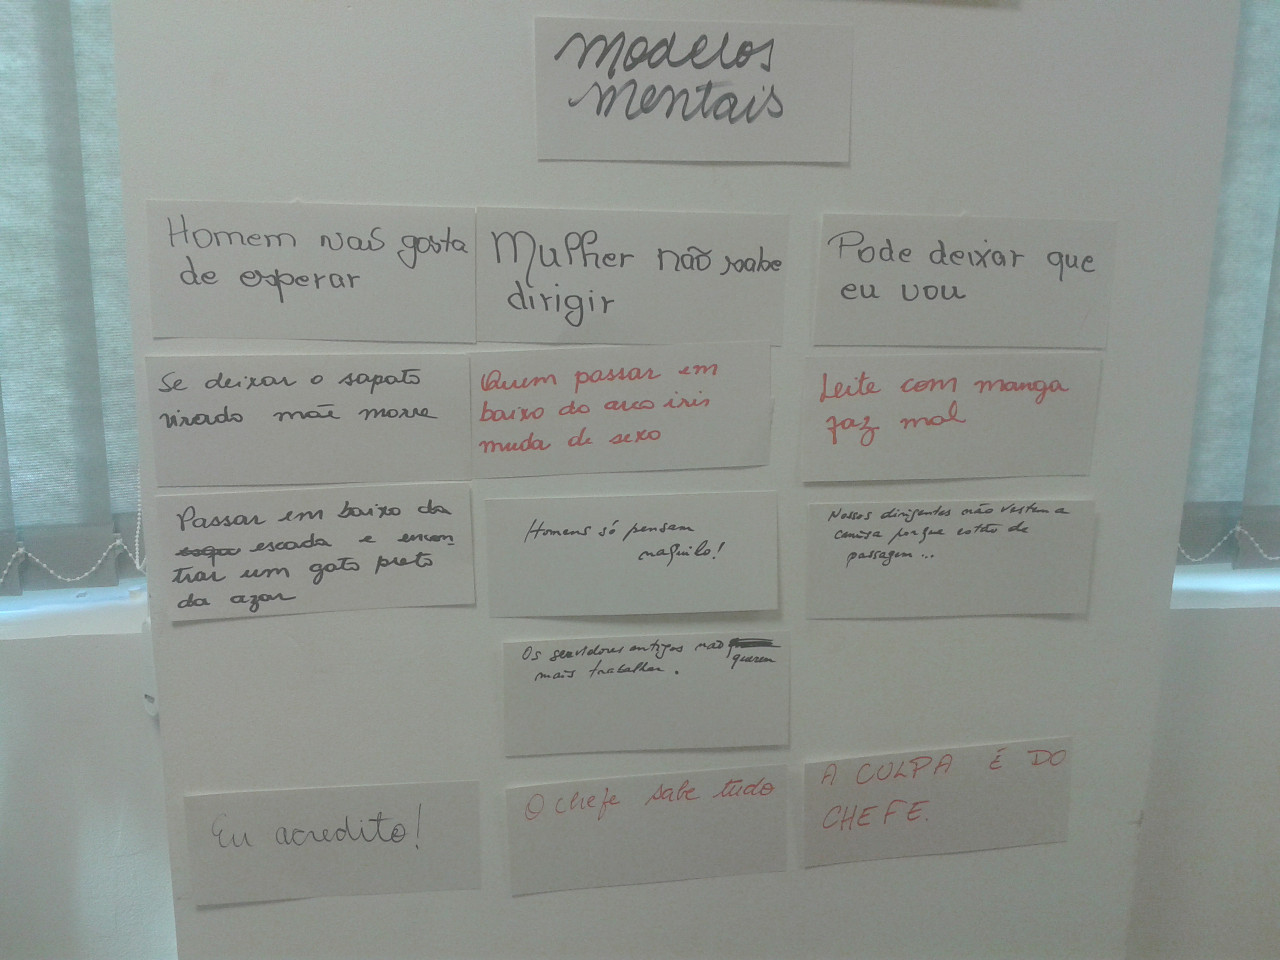 Modelos
Mentais
Homem não gosta
de esperar
Mulher não sabe
dirigir
Pode deixar que
eu vou
Se deixar o sapato
virado mãe morre
Quem passar em
baixo do arco iris
muda de sexo
Leite com manga
faz mal
Passar em baixo da
escada e encon
trar um gato preto
da azar
Homens só pensam
naquilo!
Nossos dirigentes não vestem a
camisa porque estão de
passagem...
Os servidores antigos não
querem
mais trabalhar.
Eu acredito!
O chefe sabe tudo
A CULPA É DO
CHEFE.